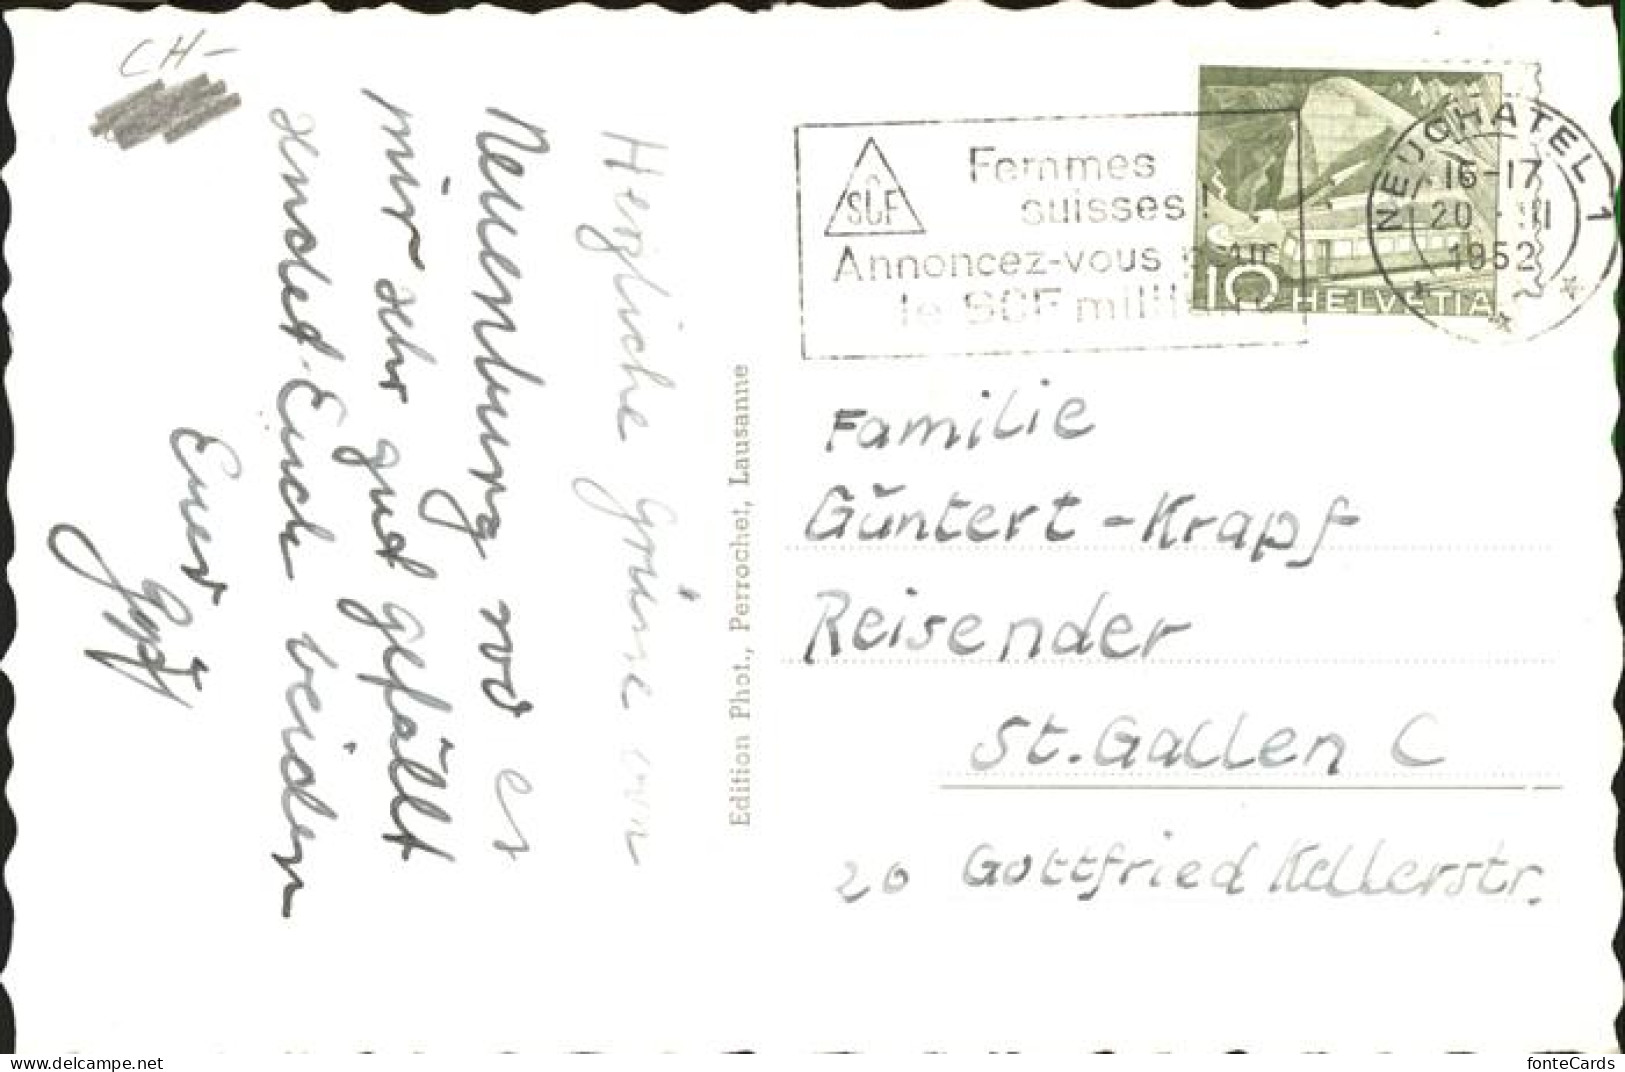 CH-
Herzliche Grüsse von
Neuenburg wo es
mir sehr gut gefällt
sendet Euch beiden
Euer
Edition Phot., Perrochet, Lausanne
SCF
Femmes
suisses !
Annoncez-vous pour
le SCF militaire
10 HELVETIA
NEUCHATEL 1
16-17
20 III
1952
Familie
Güntert-Krapf
Reisender
St. Gallen C
20 Gottfried Kellerstr.
delcampe.net
fonteCards